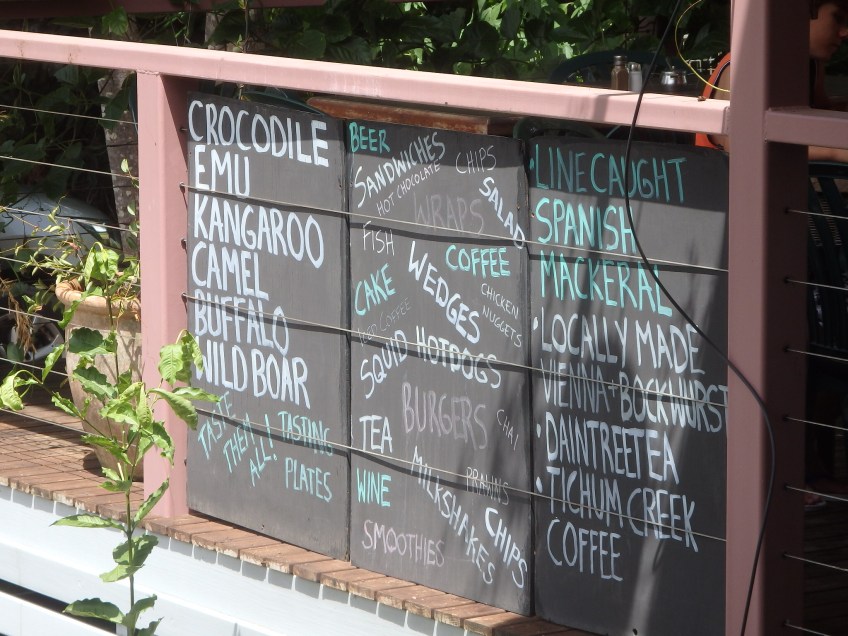 CROCODILE
EMU
KANGAROO
CAMEL
BUFFALO
WILD BOAR
TASTE
THEM
ALL!
TASTING
PLATES
BEER
SANDWICHES
CHIPS
HOT CHOCOLATE
WRAPS
SALAD
FISH
COFFEE
WEDGES
CAKE
CHICKEN
NUGGETS
ICED COFFEE
SQUID
HOTDOGS
BURGERS
CHAI
TEA
PRAWNS
MILKSHAKES
WINE
CHIPS
SMOOTHIES
• LINE CAUGHT
SPANISH
MACKERAL
• LOCALLY MADE
VIENNA + BOCKWURST
• DAINTREE TEA
• TICHUM CREEK
COFFEE